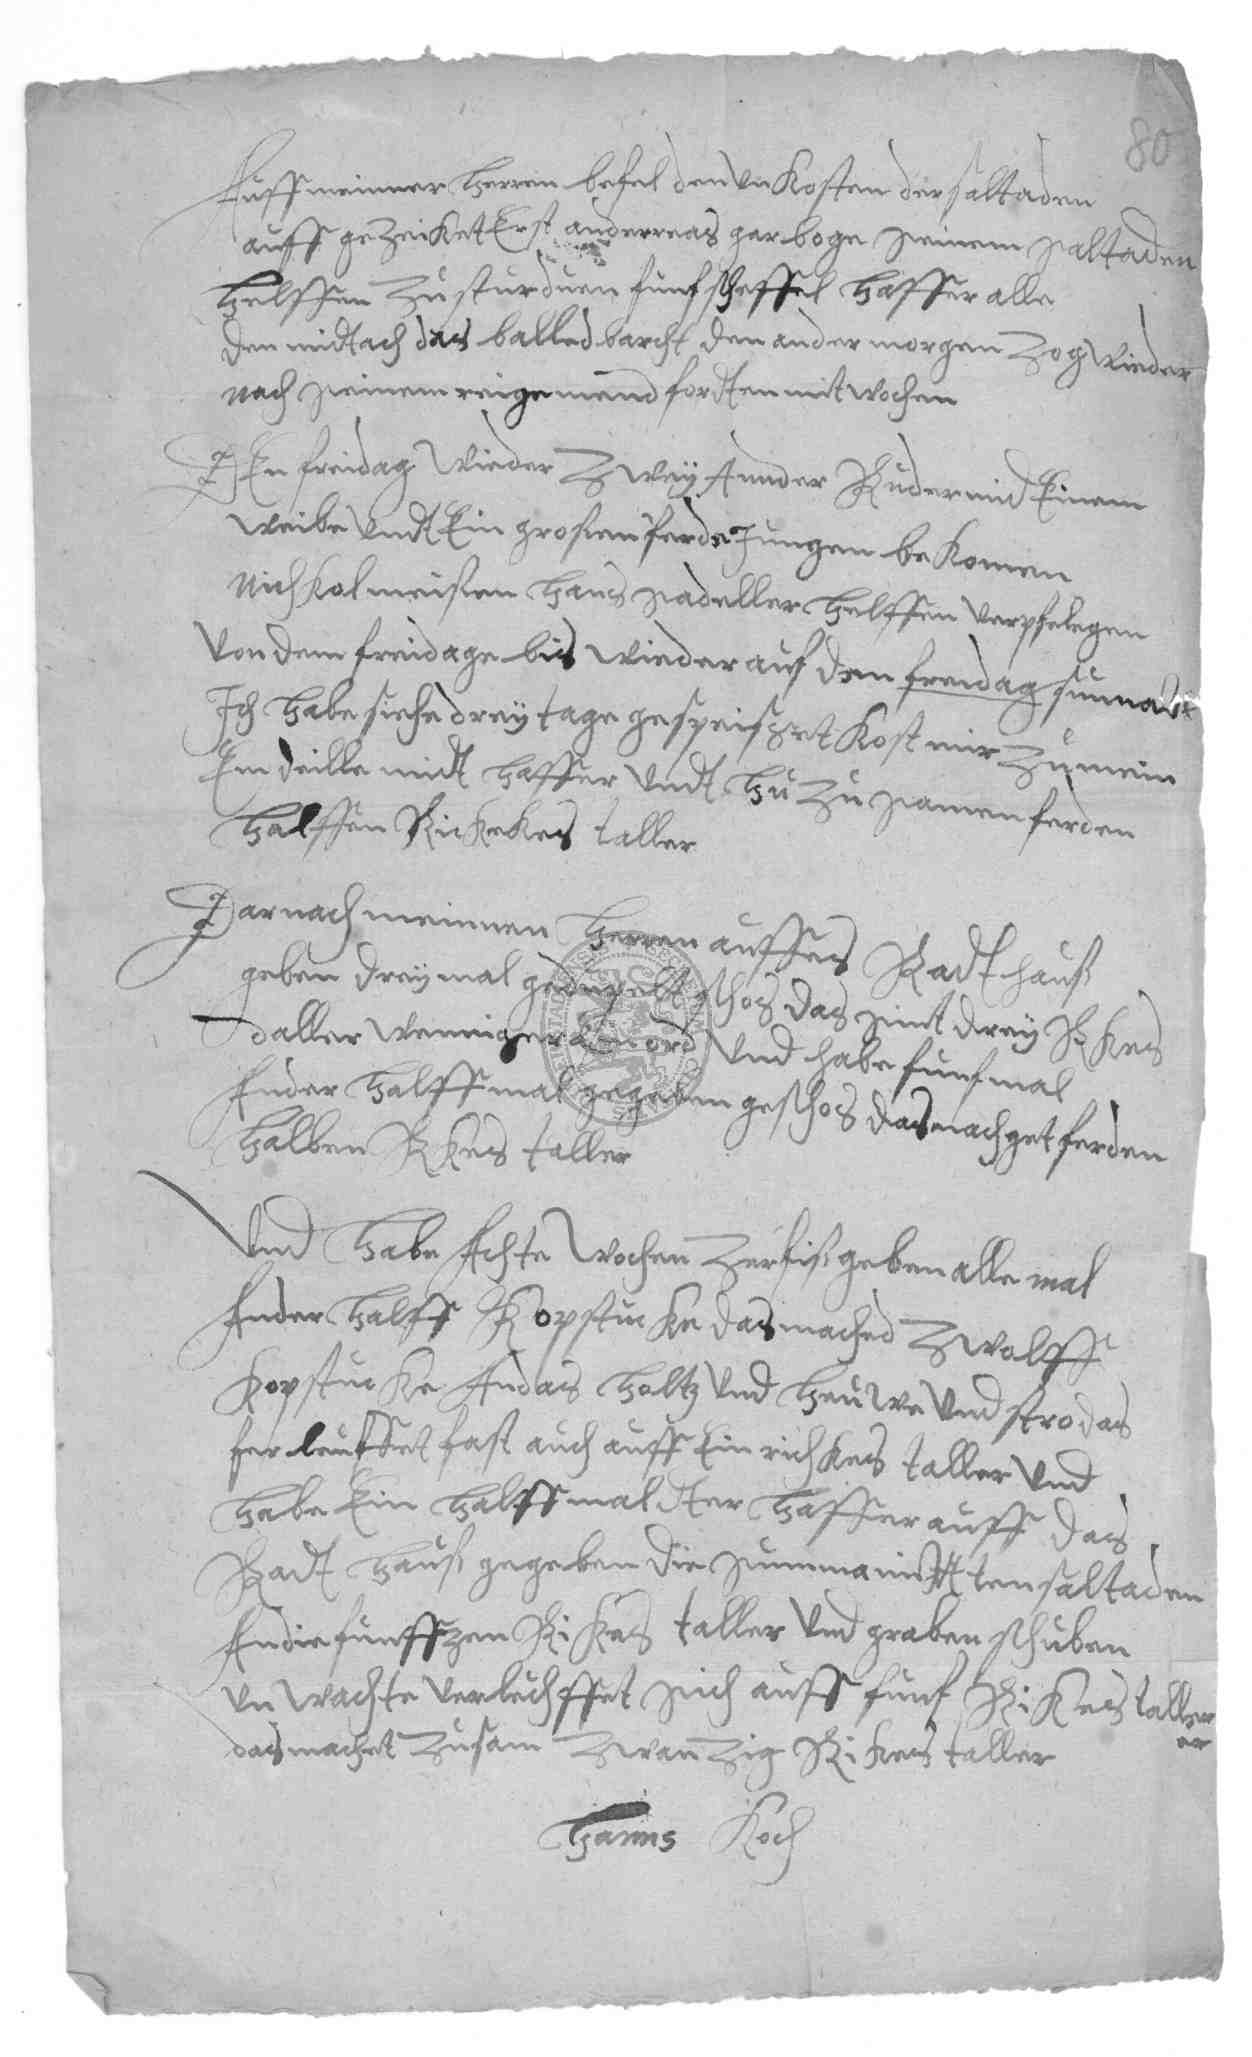 80
Auff meinner herren befel den un kosten der saltaden
auff gezeicket Erst anderreas garboge seinem saltaden
helffen zu stur duen funf scheffel haffer alle
den midtach das balled barcht den ander morgen zog wieder
nach seinem reigemend fordten mitwochen
Den freidag wieder zwey Ander Ruder mid Einem
weibe undt Ein grosen ferde Jungen bekomen
Nichkol meisen hans sadeller helffen verpfelegen
von dem freidage bis wieder auf den freidag sunna
Ich habe siehe drey tage gespeisset kost mir zu mein
Em deille midt haffer undt hu zu samen ferden
halffen Rickekes taller
Darnach meinnen herren auffes Radt haus
geben drey mal gedupelt schos das sint drey Rkes
daller wenniger ord und habe funf mal
Ander halff mal gegeben geschos das machget ferden
halben Rkes taller
Und habe Achte wochen zerfis geben alle mal
Ander halff kopstucke das mached zwolff
kopstucke An das holtz und heuwe und stro das
ferleufset fast auch auff Ein richkes taller und
habe Ein halff maldter haffer auff das
Radt haus gegeben die summa midt ten saltaden
An die funffzen Rikes taller und graben schuben
un wachte verluchffet sich auff funf Rikes taller
das machet zusam zwanzig Rikes taller
Hanns Koch